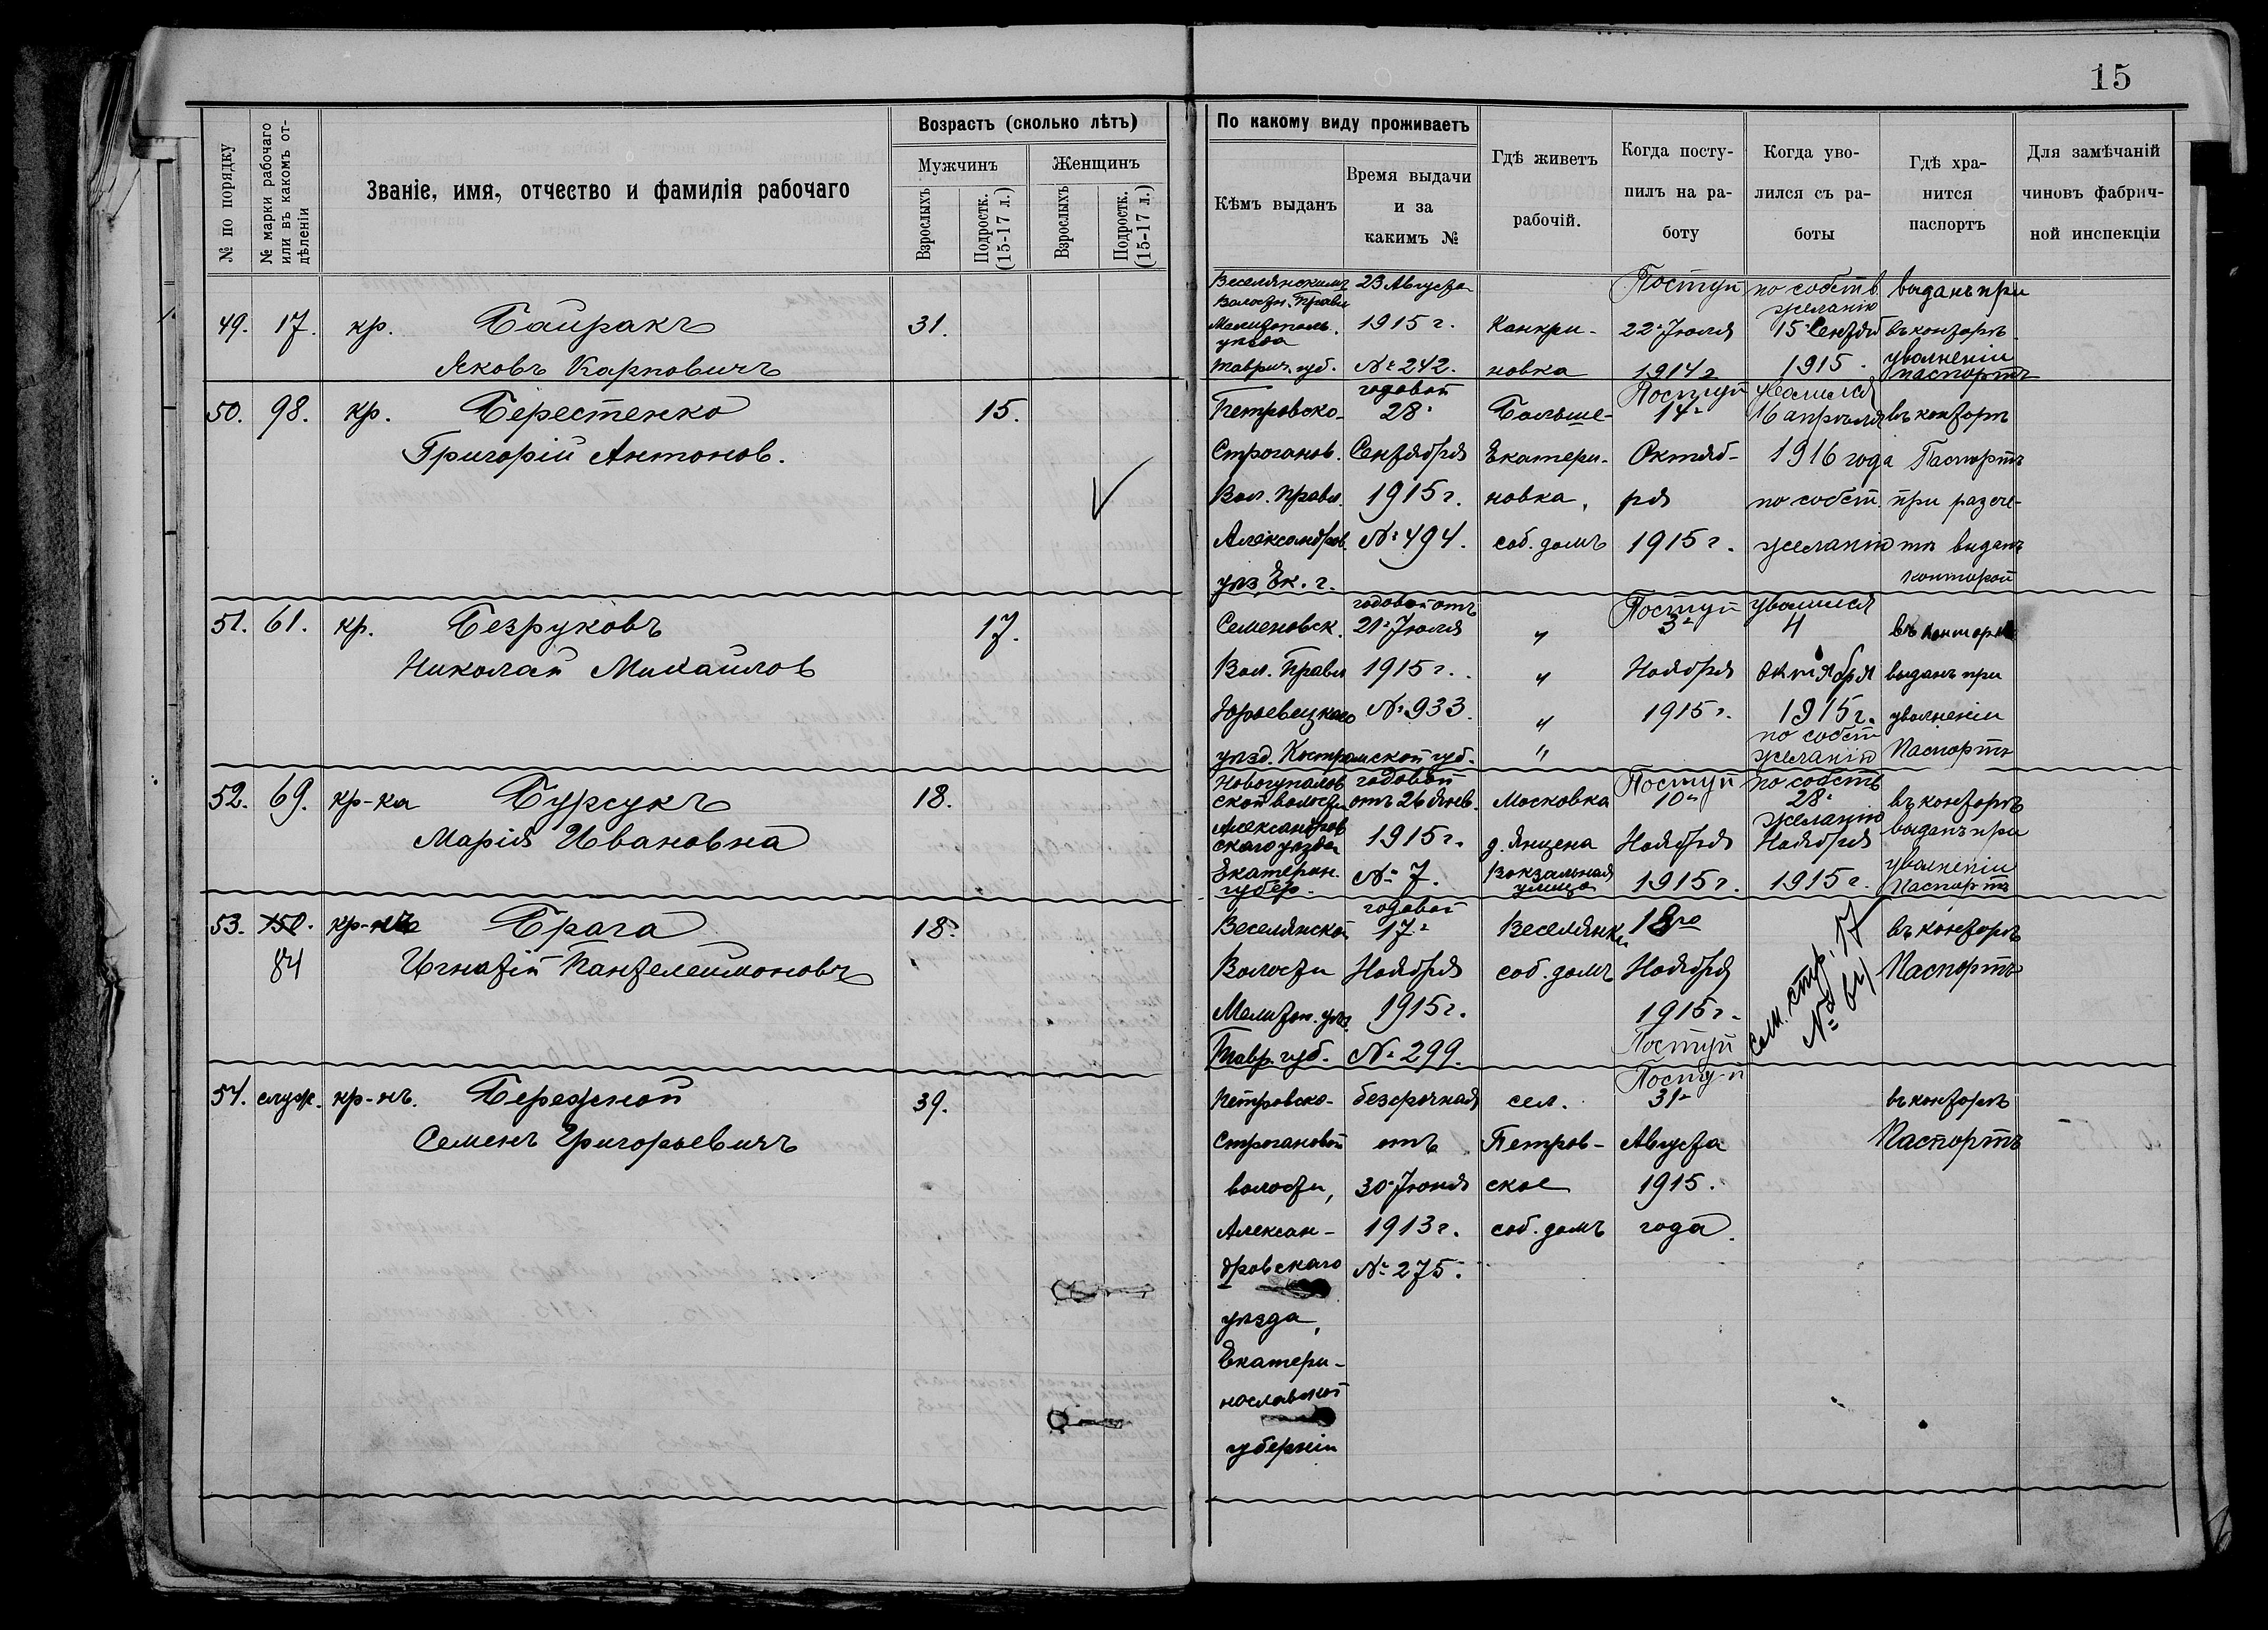 15
№ по порядку
№ марки рабочаго
или въ какомъ от-
дѣленіи
Званіе, имя, отчество и фамилія рабочаго
Возрастъ (сколько лѣтъ)
Мужчинъ
Женщинъ
Взрослыхъ
Подростк.
(15-17 л.)
Взрослыхъ
Подростк.
(15-17 л.)
По какому виду проживаетъ
Кѣмъ выданъ
Время выдачи
и за
какимъ №
Гдѣ живетъ
рабочій.
Когда посту-
пилъ на ра-
боту
Когда уво-
лился съ ра-
боты
Гдѣ хра-
нится
паспортъ
Для замѣчаній
чиновъ фабрич-
ной инспекціи
49. 17. кр. Байракъ
Яковъ Карповичъ
31.
Веселянскимъ
Волостн. Правл
Мелитополь.
уѣзда
Таврич. губ.
23 Августа
1915 г.
№ 242.
Канкри-
новка
Поступ
22го Іюля
1914 г
по собств
желанію
15 Сентяб
1915.
выданъ при
въ конторѣ
уволненіи
паспортъ
50. 98. кр. Берестенко
Григорій Антонов.
15.
Петровско-
Строганов.
Вол. Правл.
Александров.
уѣз. Ек. г.
годовой
28го
Сентября
1915 г.
№ 494.
Больше-
Екатери-
новка,
соб. домъ
Поступ
14го
Октяб-
ря
1915 г.
уволился
16 апрѣля
1916 года
по собст.
желанію
въ конторѣ
Паспортъ
при расче-
тѣ выданъ
конторой
51. 61. кр. Безруковъ
Николай Михаилов
17.
Семеновск.
Вол. Правл
Юрьевецкаго
уѣзд. Костромской губ.
годовой отъ
21го Іюля
1915 г.
№ 933.
"
"
"
"
Поступ
3го
Ноября
1915 г.
уволился
4
октября
1915 г.
по собст
желанію
въ конторѣ
выданъ при
уволненіи
Паспортъ
52. 69. кр-ка Бурсукъ
Марія Ивановна
18.
Новогупалов
ской волости
Александров
скаго уѣзда
Екатерин.
губер.
годовой
отъ 26 янв.
1915 г.
№ 7.
Московка
д. Янцена
Вокзальная
улица
Поступ
10го
Ноября
1915 г.
по собств
28го
желанію
Ноября
1915 г.
въ конторѣ
выданъ при
уволненіи
Паспортъ
53. 150. кр-нъ Брага
84 Игнатій Пантелеимоновъ
18.
Веселянской
Волости
Мелитоп. уѣз.
Тавр. губ.
годовой
17го
Ноября
1915 г.
№ 299.
Веселянки
соб. домъ
18го
Ноября
1915 г.
Поступ
см. стр. 17
№ 64
въ конторѣ
Паспортъ
54. служ. кр-нъ. Бережной
Семенъ Григорьевичъ
39.
Петровско-
Строгановой
волости,
Алексан-
дровскаго
уѣзда,
Екатери-
нославской
губерніи
безсрочная
отъ
30го Іюня
1913 г.
№ 275.
сел.
Петров-
ское
соб. домъ
Поступ
31го
Августа
1915.
года.
въ конторѣ
Паспортъ